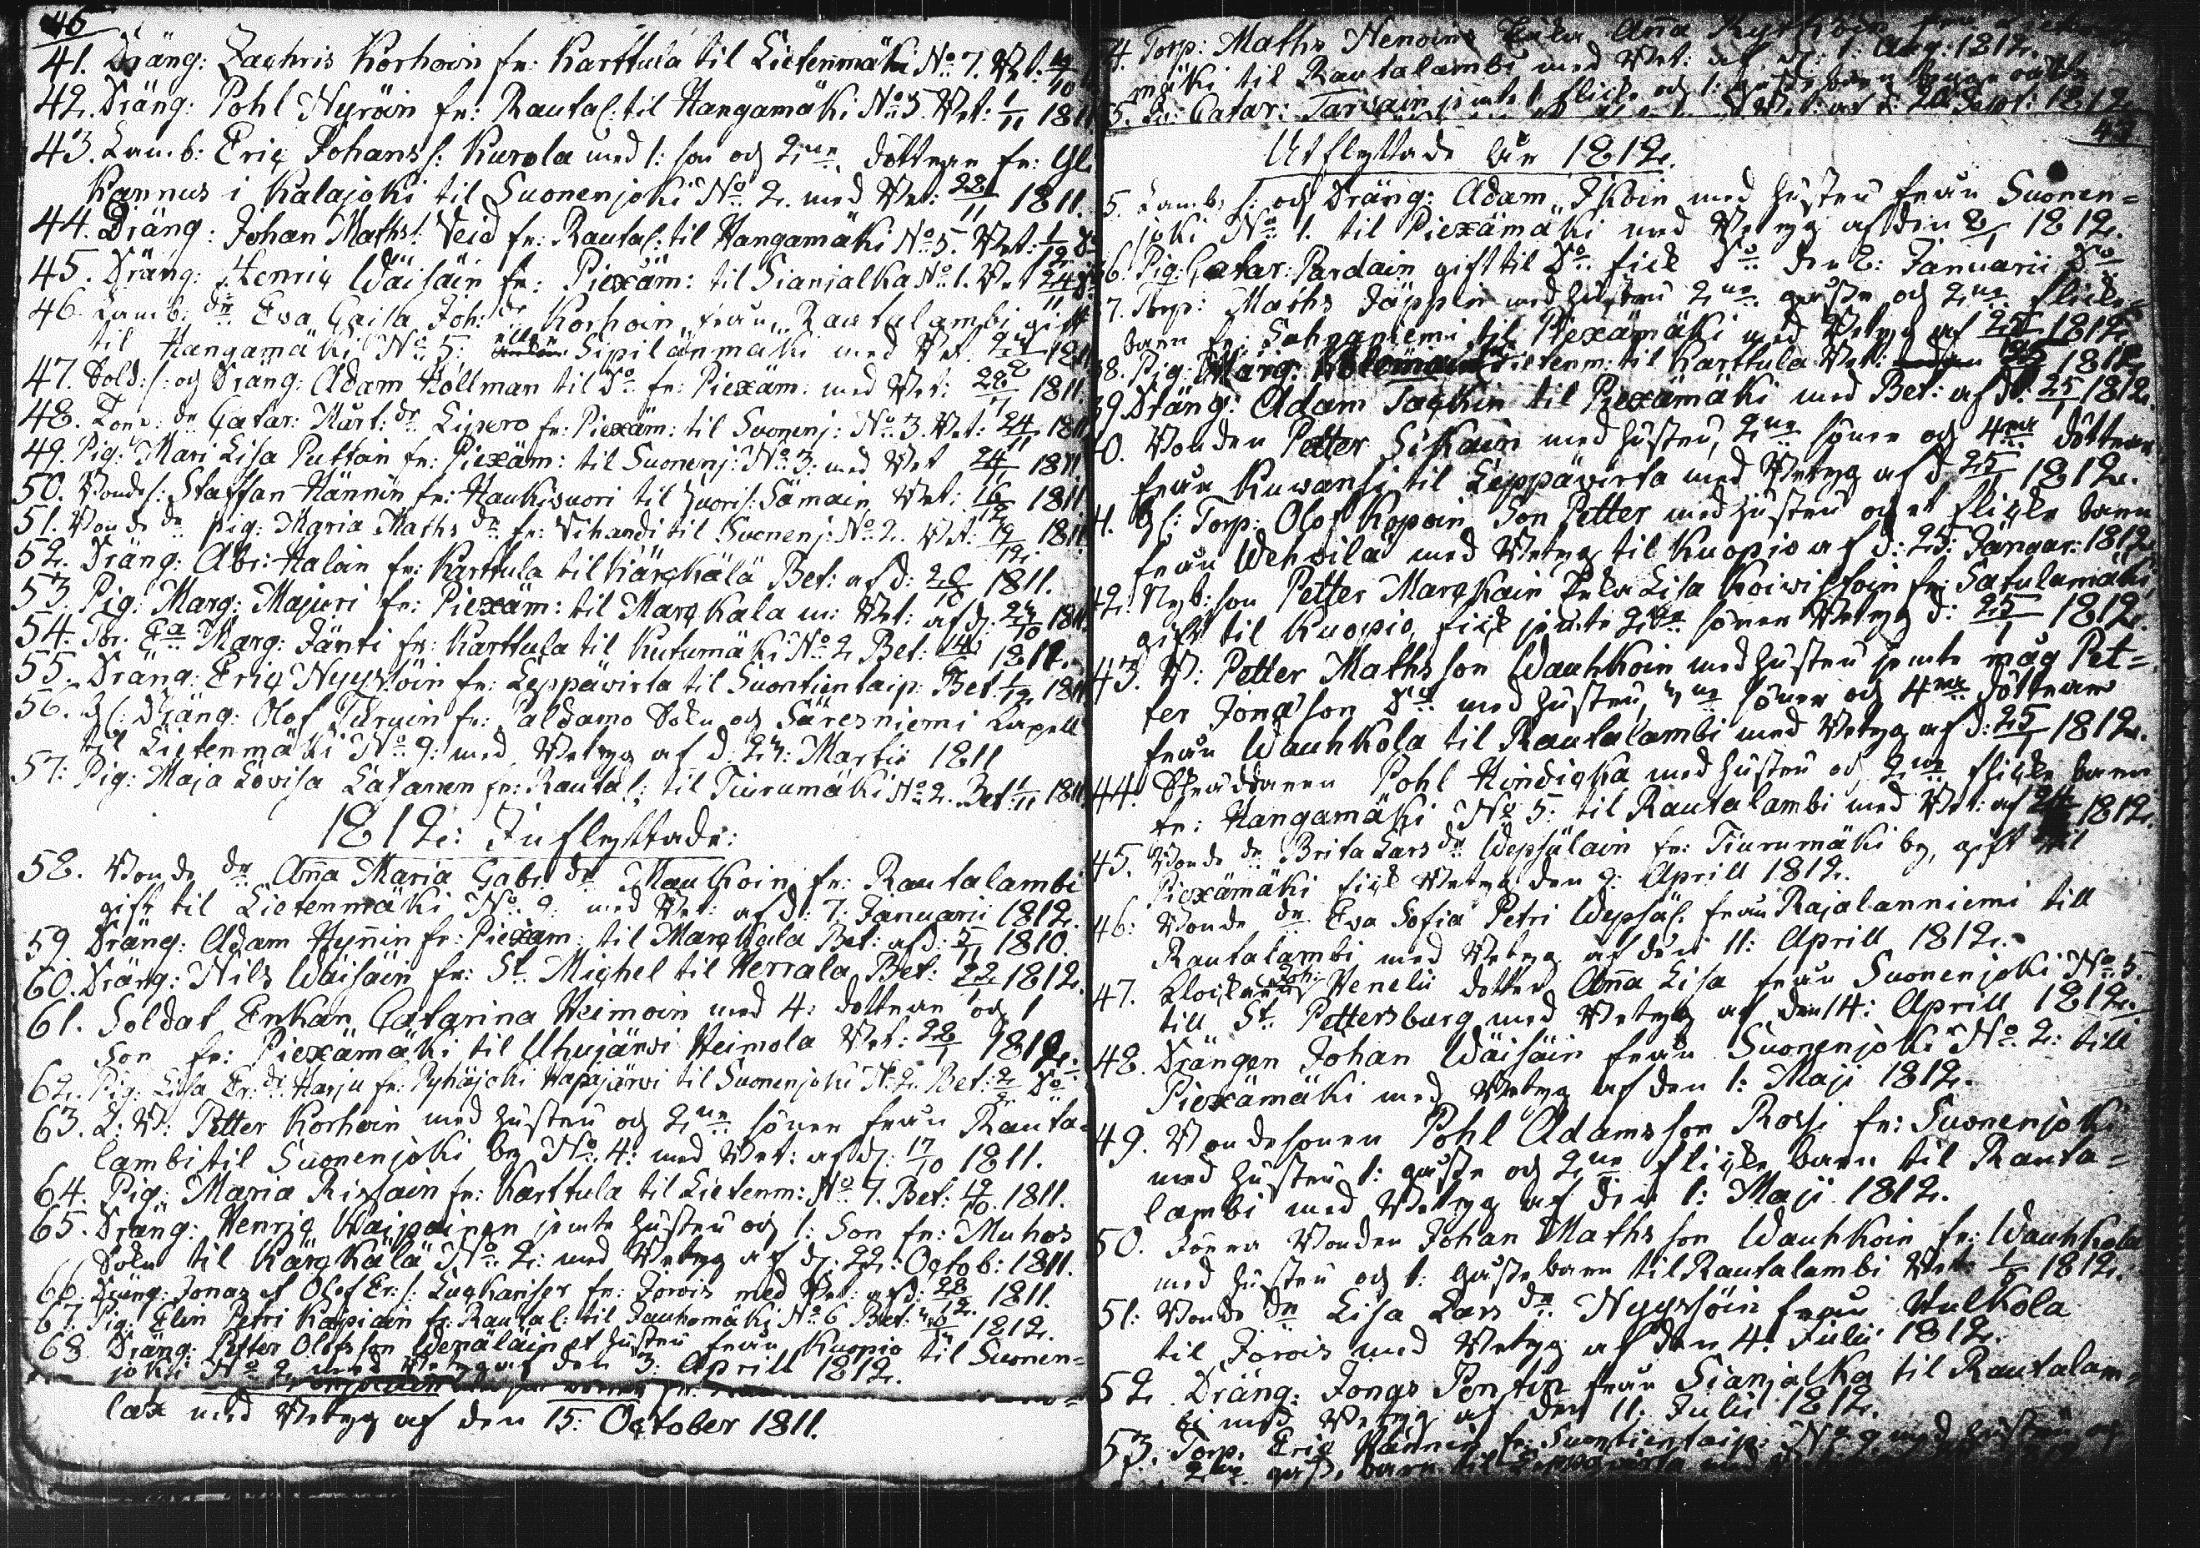 46
41. Dräng: Zachris Korhoin fr: Karttula til Lietenmäki No 7. Bet. 19/10
42. Dräng: Pohl Nyröin fr: Rautal: til Hangamäki No 5. Bet: 1/11 1811
43. Lamb: Eric Johanss: Kurola med 1: son och 2ne döttrar fr: Gl.
Kannus i Kalajoki til Suonenjoki No 2. med Bet: 28/11 1811.
44. Dräng: Johan Maths: Veid fr: Rautal: til Hangamäki No 5. Bet: 1/12
45. Dräng: Henric Wäisäin fr: Piexäm: til Sianjalka No 1. Bet 24/11
46. Lamb: dr Eva Caisa Joh: dr Korhoin från Rautalambi gift
til Hangamäki No 5; eller Sipilänmäki med Bet. 1811
47. Sold: s: och Dräng: Adam Hollman til Do fr: Piexäm: med Bet: 28/11 1811.
48. dr Catar: Mårt: dr Lipero fr: Piexäm: til Suonenj: No 3. Bet: 24/11 1811
49. Pig: Mari Lisa Puttain fr: Piexäm: til Suonenj: No 3: med Bet 24/11 1811
50. Bondes: Staffan Hännin fr: Haukivuori til Sämäin Bet: 16/12 1811.
51. Bonde dr pig: Maria Maths dr fr: Vihandi til Suonenj: No 2. Bet: 19/12 1811
52. Dräng: Abr: Haloin fr: Karttula til Kärckälä Bet: af d: 20/10 1811.
53. Pig: Marg: Majuri fr: Piexäm: til Marckala m: Bet: af d: 27/10 1811.
54. Marg: Jänti fr: Karttula til Kutumäki No 2 Bet: 1811.
55. Dräng: Eric Nyyssöin fr: Leppävirta til Suontientaip: Bet 1/12 1811
56. Gl: Dräng: Olof fr: Paldamo Sokn och Säresniemi Kapell
til Lietenmäki No 9: med Betyg af d: 27: Martii 1811
57: Pig: Maja Lovisa Lasanen fr: Rautal: til Tiurumäki No 2. Bet 1/11 1811
1812: Inflyttade:
58. Bonde dr Anna Maria Gabr: dr Maukoin fr: Rautalambi
gift til Lietenmäki No 9: med Bet: af d: 7: Januarii 1812.
59. Dräng: Adam Hynnin fr: Piexäm: til Marckala Bet: af d: 5/11 1810.
60. Dräng: Nils Wäisäin fr: St. Michel til Herrala Bet: 22/1 1812.
61. Soldat Enkan Catarina Heimoin med 4: döttrar och 1
Son fr: Piexämäki til Uhujärvi Heimola Bet: 22/1 1812.
62. Pig: Lisa Er: dr Harju fr: Pyhäjoki Hapajärvi til Suonenjoki No 2. Bet: 2/2 Do
63. L: B: Petter Korhoin med hustru och 2ne söner från Rauta-
lambi til Suonenjoki by No 4: med Bet: af d: 17/10 1811.
64. Pig: Maria Rissain fr: Karttula til Lietenm: No 7. Bet: 19/10 1811.
65. Dräng: Henric Kaipainen jemte hustru och 1: Son fr: Muhos
Sokn til Kärckälä No 2: med Betyg af d: 22: Octob: 1811.
66. Dräng: Jonas et Olof Er: s: Luckanser fr: Jorois med Bet: af d: 28/12 1811.
67. Pig: Elin Petri Kapiain fr: Rautal: til Jauhomäki No 6 Bet: 1812.
68 Dräng: Petter Olofsson Wenäläin et hustru från Kuopio til Suonen-
joki No 2 med Betyg af den 3: Aprill 1812.
lax med Betyg af den 15: October 1811.
34. Torp: Maths Henoin Enka Anna Kyrköin
mäki til Rautalambi med Bet: af d: 1: Aug: 1812.
35. Catar: Tarvain jemte 1 flicke och 1: gosse barn
47
Utflyttade år 1812.
5. Lamb: s: och Dräng: Adam Ikoin med hustru från Suonen-
joki No 1. til Piexämäki med Betyg af den 2/1 1812.
36. Pig: Catar: Pardain gift til Do fick Do den 2: Januarii Do
37. Torp: Maths Jäppin med hustru 2ne gosse och 2ne flicke-
barn fr: Sahganiemi til Piexämäki med Betyg af 25/1 1812.
38. Pig: Marg: Lietenm: til Karttula Bet: 1812.
39 Dräng: Adam Tackin til Piexämäki med Bet: af d: 25/1 1812.
40. Bonden Petter Sikain med hustru, 2ne söner och 4ra döttrar
från Kuvansi til Leppävirta med Betyg af d 25/1 1812.
41. Gl: Torp: Olof Kopoin Son Petter med hustru och et flicke barn
från Wehvilä med Betyg til Kuopio af d: 25: Januar: 1812.
42. Nyb: son Petter Marckain Enka Lisa Koivistoin fr: Satulamäki
gift til Kuopio, fick jemte 2ne söner Betyg d: 25/1 1812.
43. B: Petter Mathsson Wauhkoin med hustru jemte måg Pet-
ter Jonasson Do med hustru, 2ne söner och 4ra döttrar
från Wauhkola til Rautalambi med Betyg af d: 25/1 1812.
44. Skräddaren Pohl Hindicka med hustru och 2ne flicke barn
fr: Hangamäki No 5: til Rautalambi med Bet: af 1812.
45. Bonde dr Brita Lars dr Wepsäläin fr: Tiurumäki by, gift til
Piexämäki fick Betyg den 9: Aprill 1812.
46: Bonde dr Eva Sofia Petri Wepsäl: från Rajalanniemi till
Rautalambi med Betyg af den 11: Aprill 1812.
47. Klockaren Joh: Henelii dotter Anna Lisa från Suonenjoki No 5.
till St. Pettersburg med Betyg af den 14: Aprill 1812.
48. Drängen Johan Wäisäin från Suonenjoki No 2: till
Piexämäki med Betyg af den 1: Maji 1812.
49. Bondesonen Pohl Adamsson Rossi fr: Suonenjoki
med hustru 1: gosse och 2ne flicke barn til Rauta-
lambi med Betyg af den 1: Maji 1812.
50. Förra Bonden Johan Mathsson Wauhkoin fr: Wauhkola
med hustru och 1: Gosse barn til Rautalambi Bet: 1/5 1812.
51: Bonde dr Lisa Lars dr Nyyssöin från Hulkola
til Jorois med Betyg af den 4: Julii 1812.
52 Dräng: Jonas Pontin från Sianjalka til Rautalam-
bi med Betyg af den 11. Julii 1812.
53. Torp. Eric Hännin fr: Suontientaip: No 9 med hustru och
2ne goss. barn til Leppävirta med